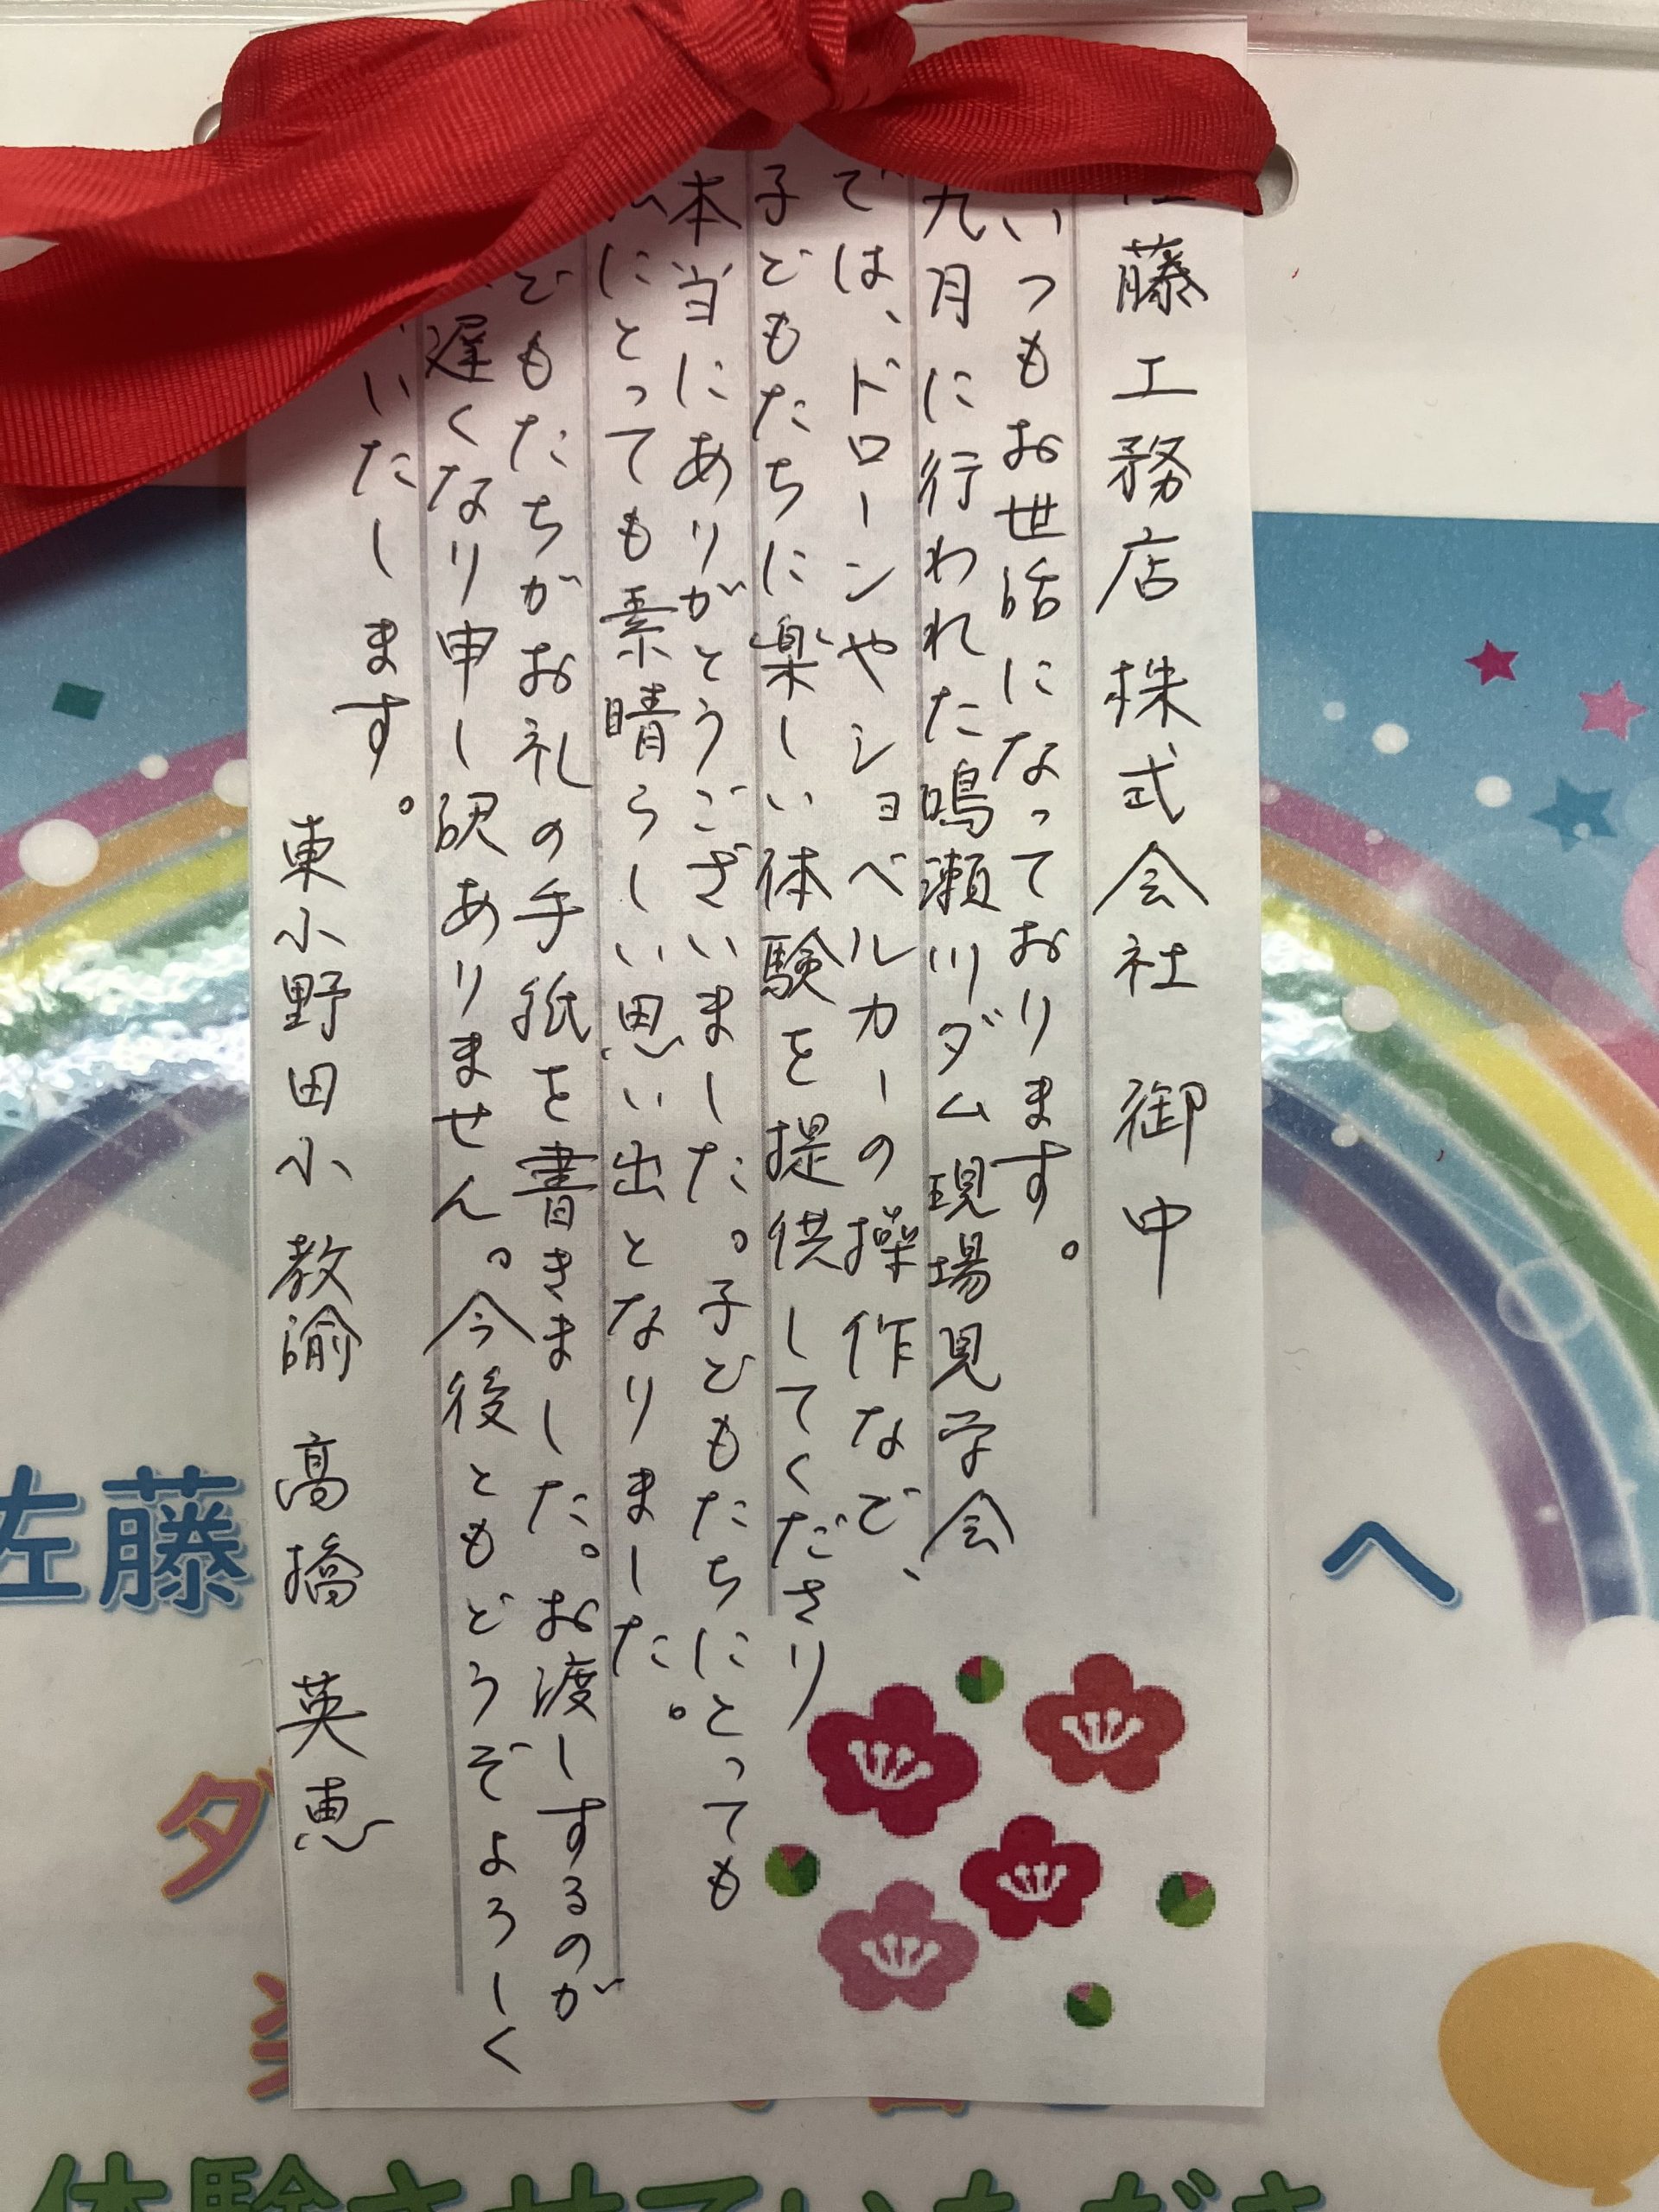 佐藤工務店 株式会社 御中
いつもお世話になっております。
九月に行われた鳴瀬川ダム現場見学会
では、ドローンやショベルカーの操作などで、
子どもたちに楽しい体験を提供してくださり
本当にありがとうございました。子どもたちにとっても
私にとっても素晴らしい思い出となりました。
どもたちがお礼の手紙を書きました。お渡しするのが
遅くなり申し訳ありません。今後ともどうぞよろしく
いたします。
東小野田小 教諭 高橋 英恵
佐藤
へ
ダ
体験させていただき